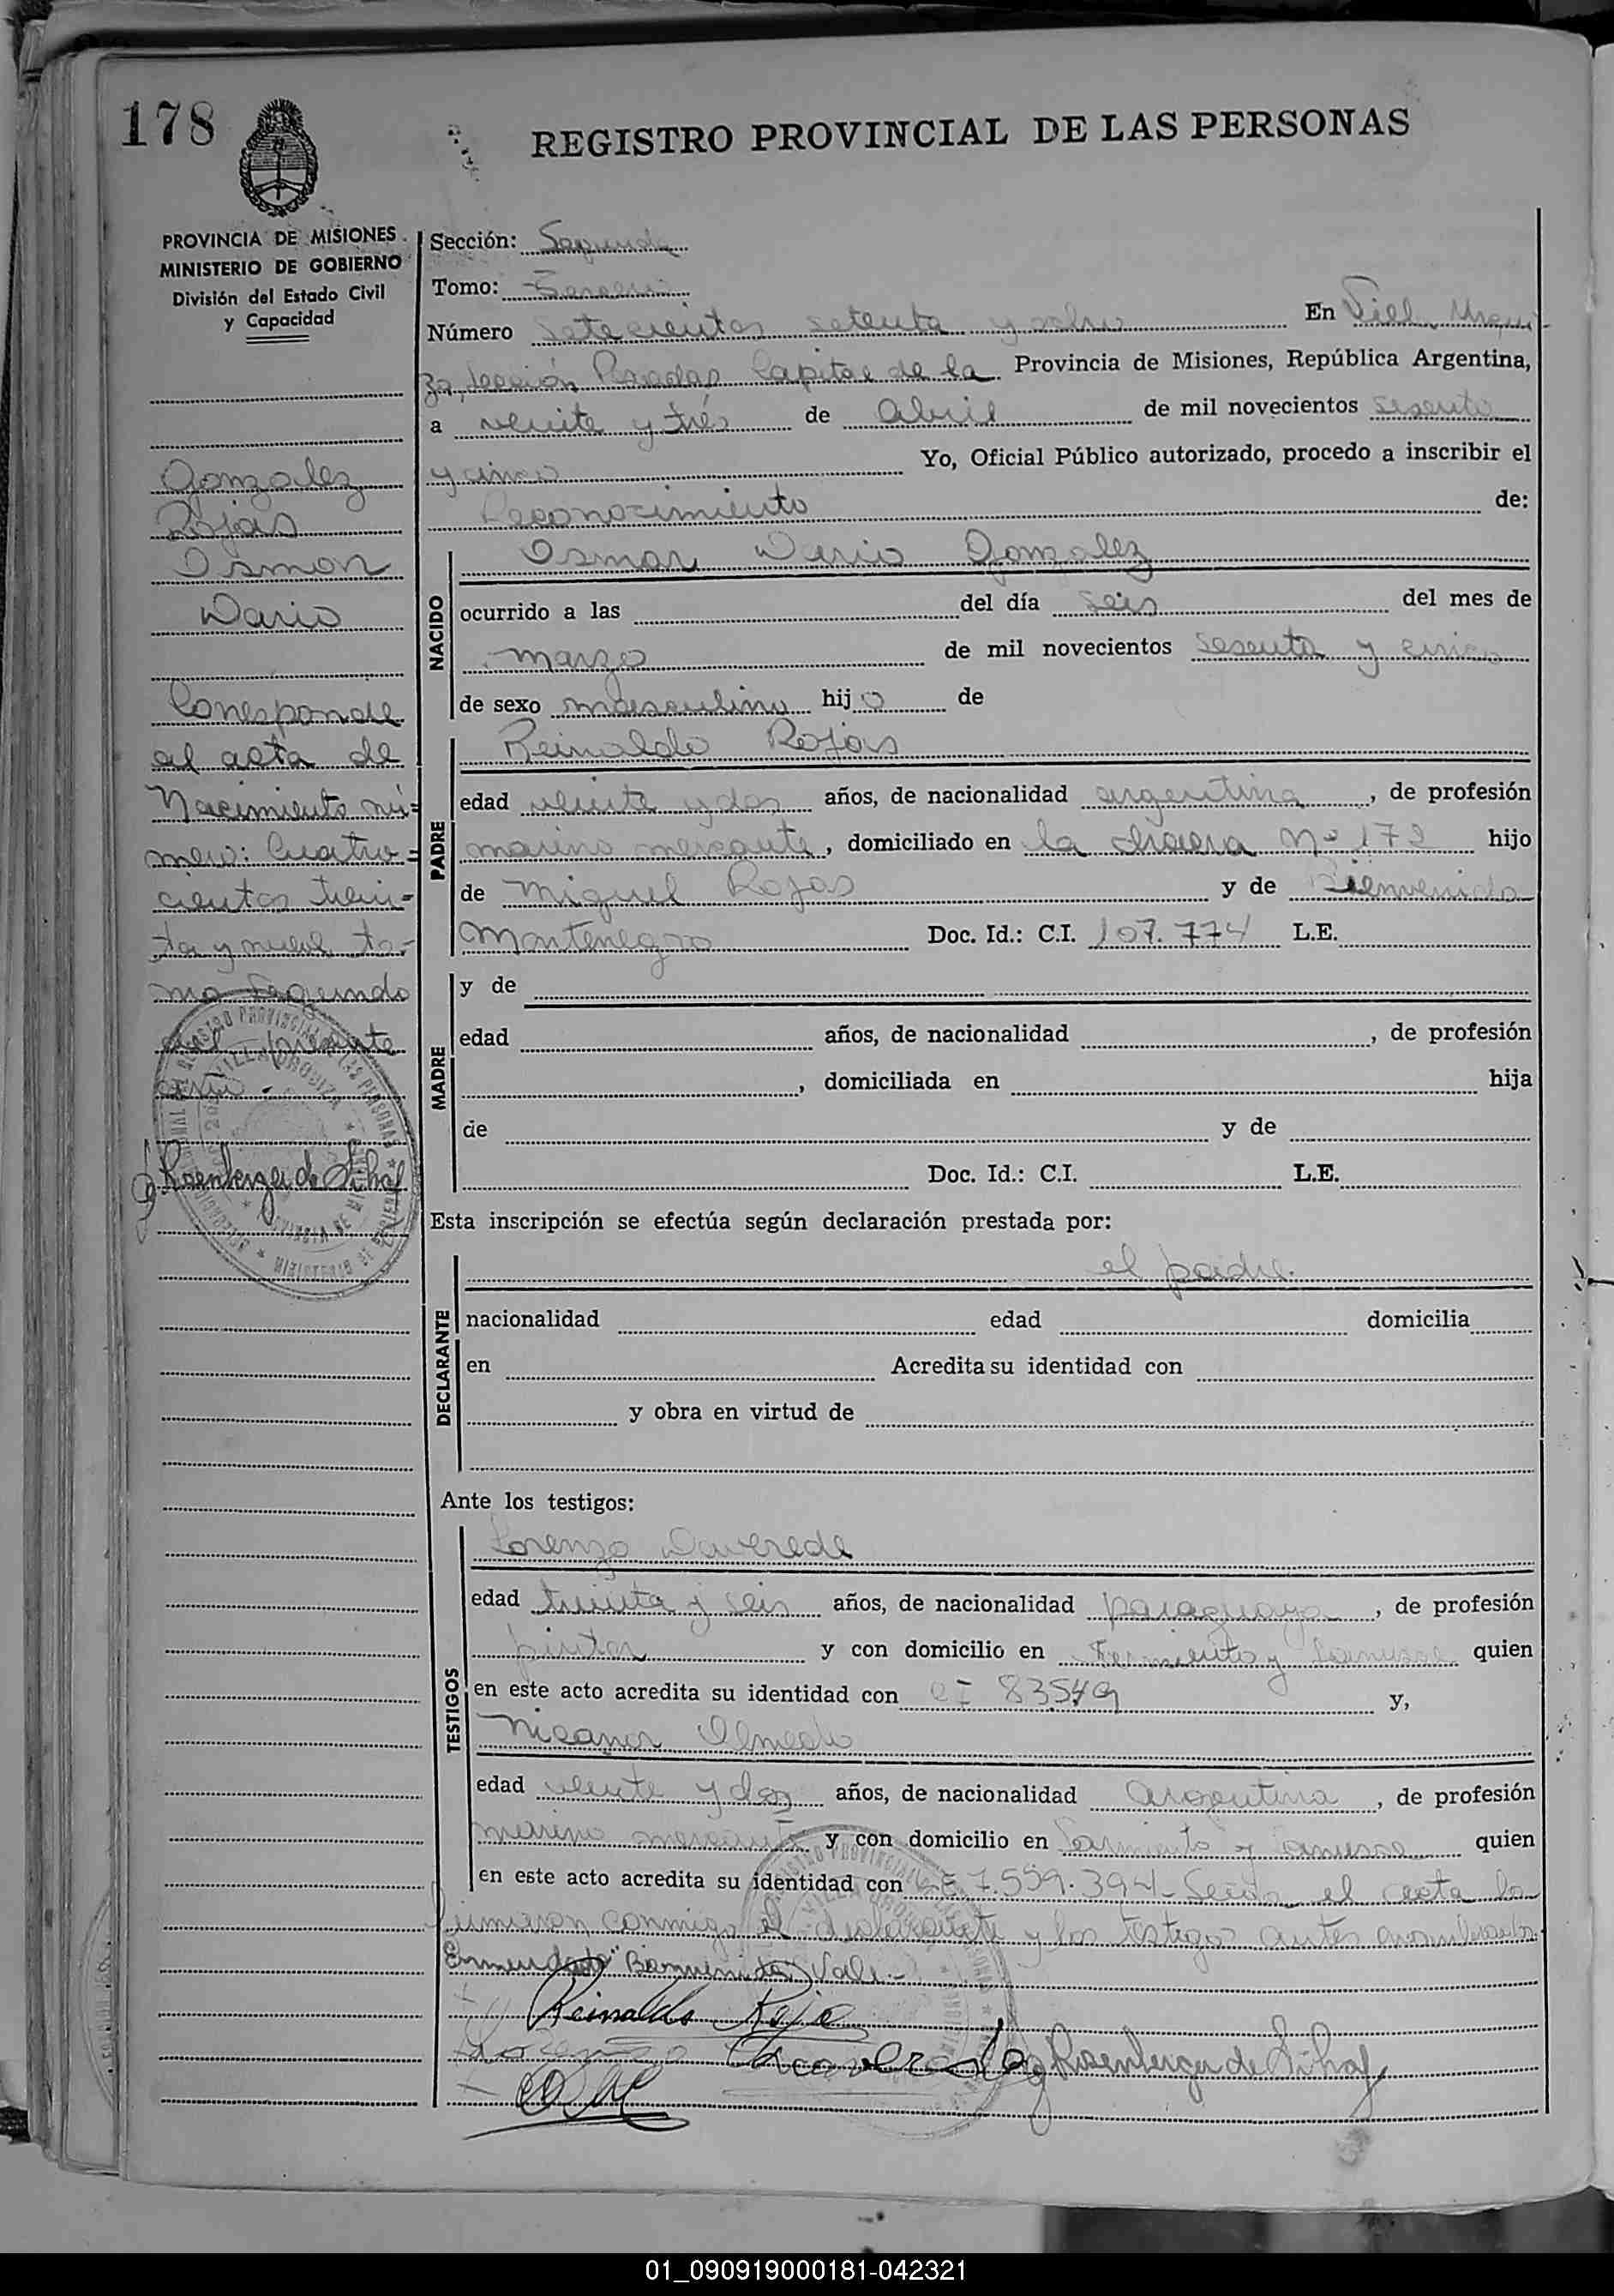 178
REGISTRO PROVINCIAL DE LAS PERSONAS
PROVINCIA DE MISIONES
MINISTERIO DE GOBIERNO
División del Estado Civil
y Capacidad
Gonzalez
Rojas
Osmar
Dario
Corresponde
al acta de
Nacimiento nú=
mero: Cuatro=
cientos trein=
ta y nueve to-
mo segundo
del presente
año.
Rosenberger de Sihaf
Sección: Segunda
Tomo: Tercero
Número Setecientos setenta y ocho En Viell Urqui-
za, Sección Posadas Capital de la Provincia de Misiones, República Argentina,
a veinte y trés de Abril de mil novecientos sesenta
y cinco Yo, Oficial Público autorizado, procedo a inscribir el
Reconocimiento de:
NACIDO
Osmar Dario Gonzalez
ocurrido a las del día seis del mes de
marzo de mil novecientos sesenta y cinco
de sexo masculino hijo de
PADRE
Reinaldo Rojas
edad veinte y dos años, de nacionalidad argentina, de profesión
marino mercante, domiciliado en la chacra Nº 172 hijo
de Miguel Rojas y de Bienvenida
Montenegro Doc. Id.: C.I. 107.774 L.E.
MADRE
y de
edad años, de nacionalidad , de profesión
, domiciliada en hija
de y de
Doc. Id.: C.I. L.E.
Esta inscripción se efectúa según declaración prestada por:
DECLARANTE
el padre.
nacionalidad edad domicilia
en Acredita su identidad con
y obra en virtud de
Ante los testigos:
TESTIGOS
Lorenzo Daverede
edad treinta y seis años, de nacionalidad paraguaya, de profesión
pintor y con domicilio en Sarmiento y Lanusse quien
en este acto acredita su identidad con CI 83549 y,
Nicanor Olmedo
edad veinte y dos años, de nacionalidad Argentina, de profesión
marino mercante y con domicilio en Sarmiento y Lanusse quien
en este acto acredita su identidad con LE 7.559.394 - Leída el acta la
firmaron conmigo el declarante y los testigos antes nombrados.
Enmendado "Bienvenida" Vale.-
Reinaldo Roja
Rosenberger de Sihaf
01_090919000181-042321